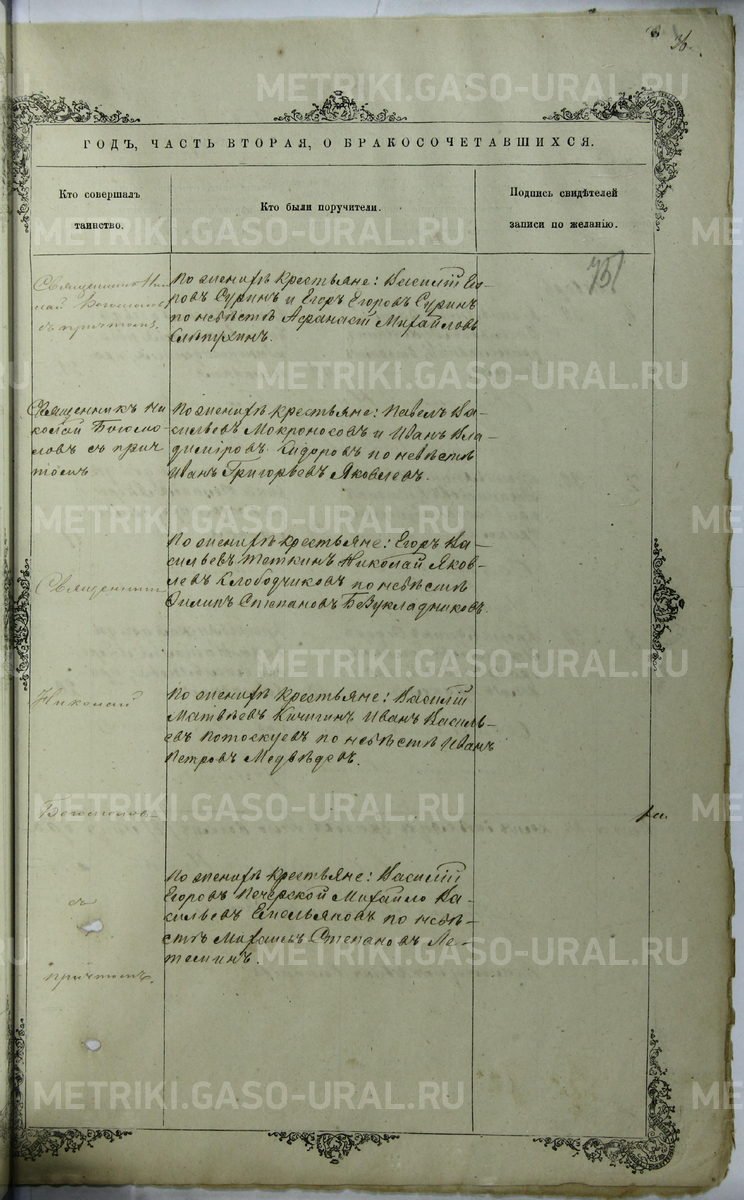 36.
METRIKI.GASO-URAL.RU
ГОДЪ, ЧАСТЬ ВТОРАЯ, О БРАКОСОЧЕТАВШИХСЯ.
Кто совершалъ
таинство.
Кто были поручители.
Подпись свидѣтелей
записи по желанію.
Священникъ Ни-
колай Богомоловъ
съ причтомъ.
По женихѣ крестьяне: Василій Его-
ровъ Суринъ и Егоръ Егоровъ Суринъ
по невѣстѣ Афанасій Михайловъ
75
Священникъ Ни
колай Богомо-
ловъ съ прич
томъ
По женихѣ крестьяне: Павелъ Ва-
сильевъ Мокроносовъ и Иванъ Вла-
диміровъ Сидоровъ по невѣстѣ
Иванъ Григорьевъ Яковлевъ.
Священник
По женихѣ крестьяне: Егоръ Ва-
сильевъ Теткинъ Николай Яков-
левъ Слободчиковъ по невѣстѣ
Филипъ Степановъ Безукладниковъ.
Николай
По женихѣ крестьяне: Василій
Матвѣевъ Кичигинъ Иванъ Василь-
евъ Потоскуевъ по невѣстѣ Иванъ
Петровъ Медвѣдевъ.
Богомоловъ
съ
причтомъ.
По женихѣ крестьяне: Василій
Егоровъ Печерской Михайло Ва-
сильевъ Емельяновъ по невѣ-
стѣ Михаилъ Степановъ Ле-
теминъ.